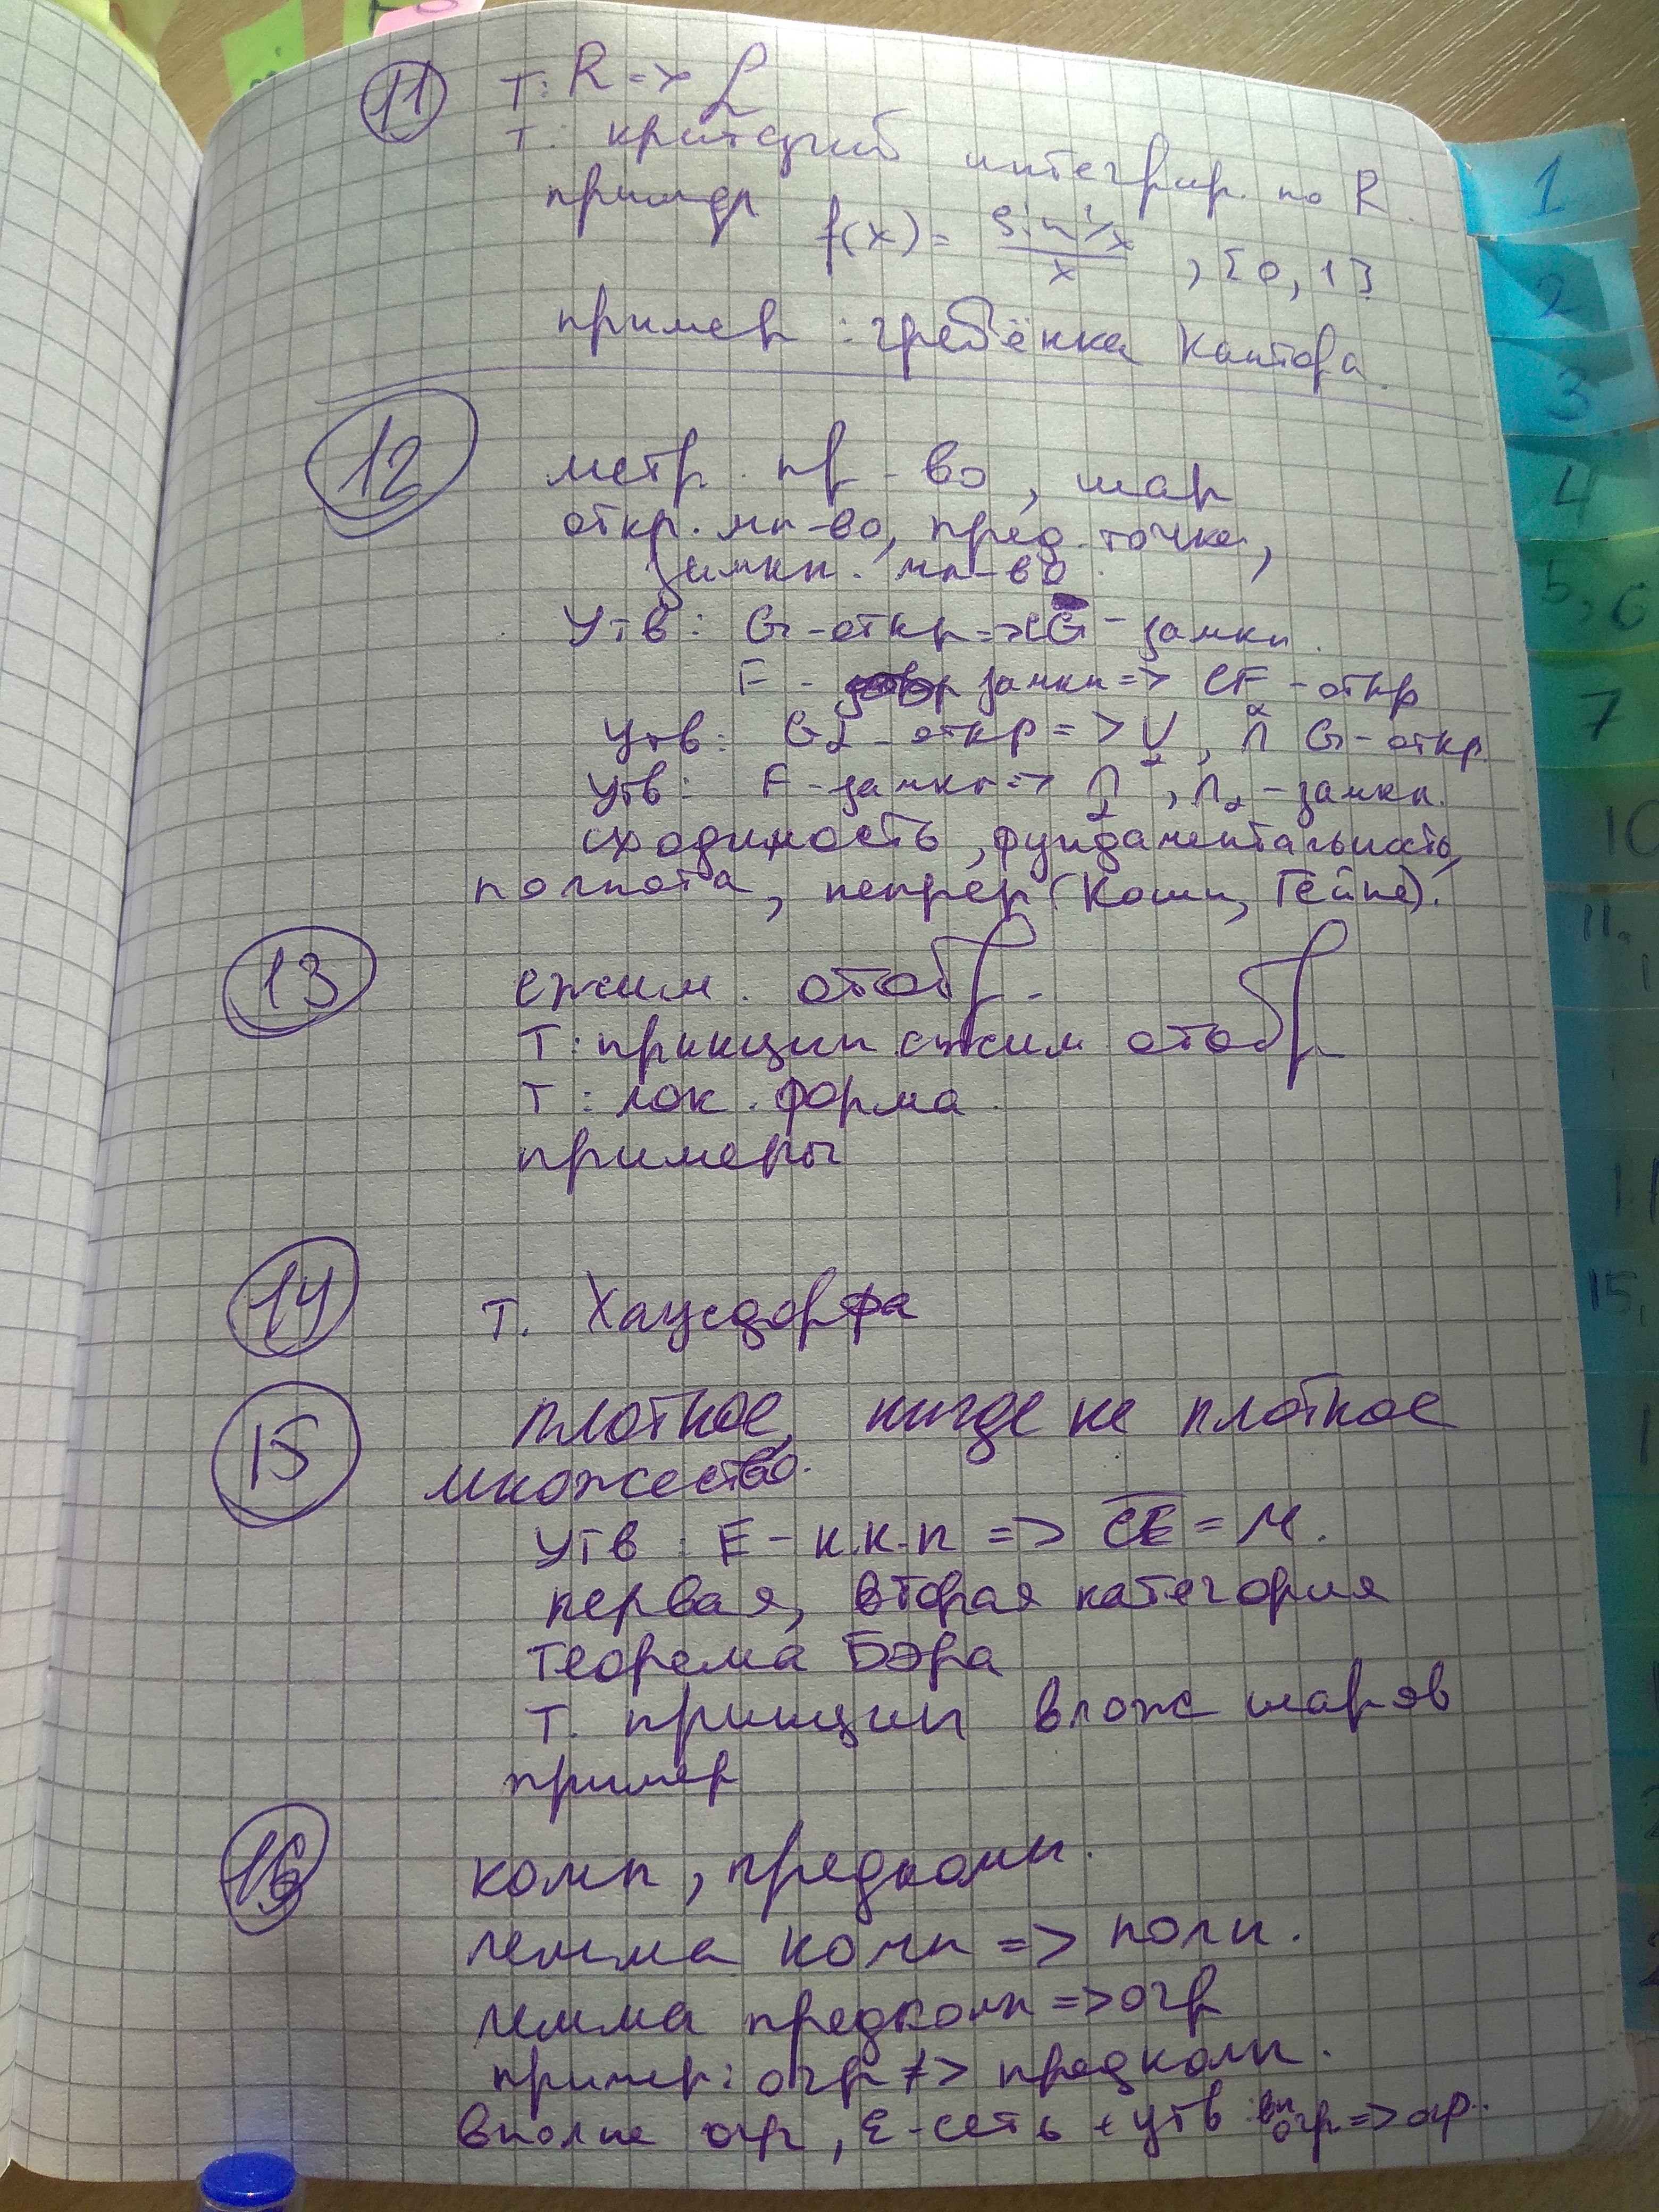 11 Т: R => L
Т: критерий интегрир. по R.
пример f(x) = sin 1/x / x , [0, 1]
пример : гребёнка Кантора.
12 метр. пр-во, шар
откр. мн-во, пред. точка,
замкн. мн-во.
Утв: G - откр => CG - замкн.
F - замкн => CF - откр
Утв: Gα - откр => ∪, ∩ G - откр.
Утв: F - замкн => ∩, - замкн.
сходимость, фундаментальность,
полнота, непрер (Коши, Гейне).
13 сжим. отобр.
Т: принцип сжим отобр
Т: лок. форма.
примеры
14 т. Хаусдорфа
15 плотное, нигде не плотное
множество.
Утв: E - н.н.п => CE = M.
первая, вторая категория
теорема Бэра
Т. принцип влож шаров
пример
16 комп, предкомп.
лемма комп => полн.
лемма предкомп => огр
пример: огр ≠> предкомп.
вполне огр, ε-сеть + утв: вп огр => огр.
1
2
3
4
5, 6
7
10
11.
15,